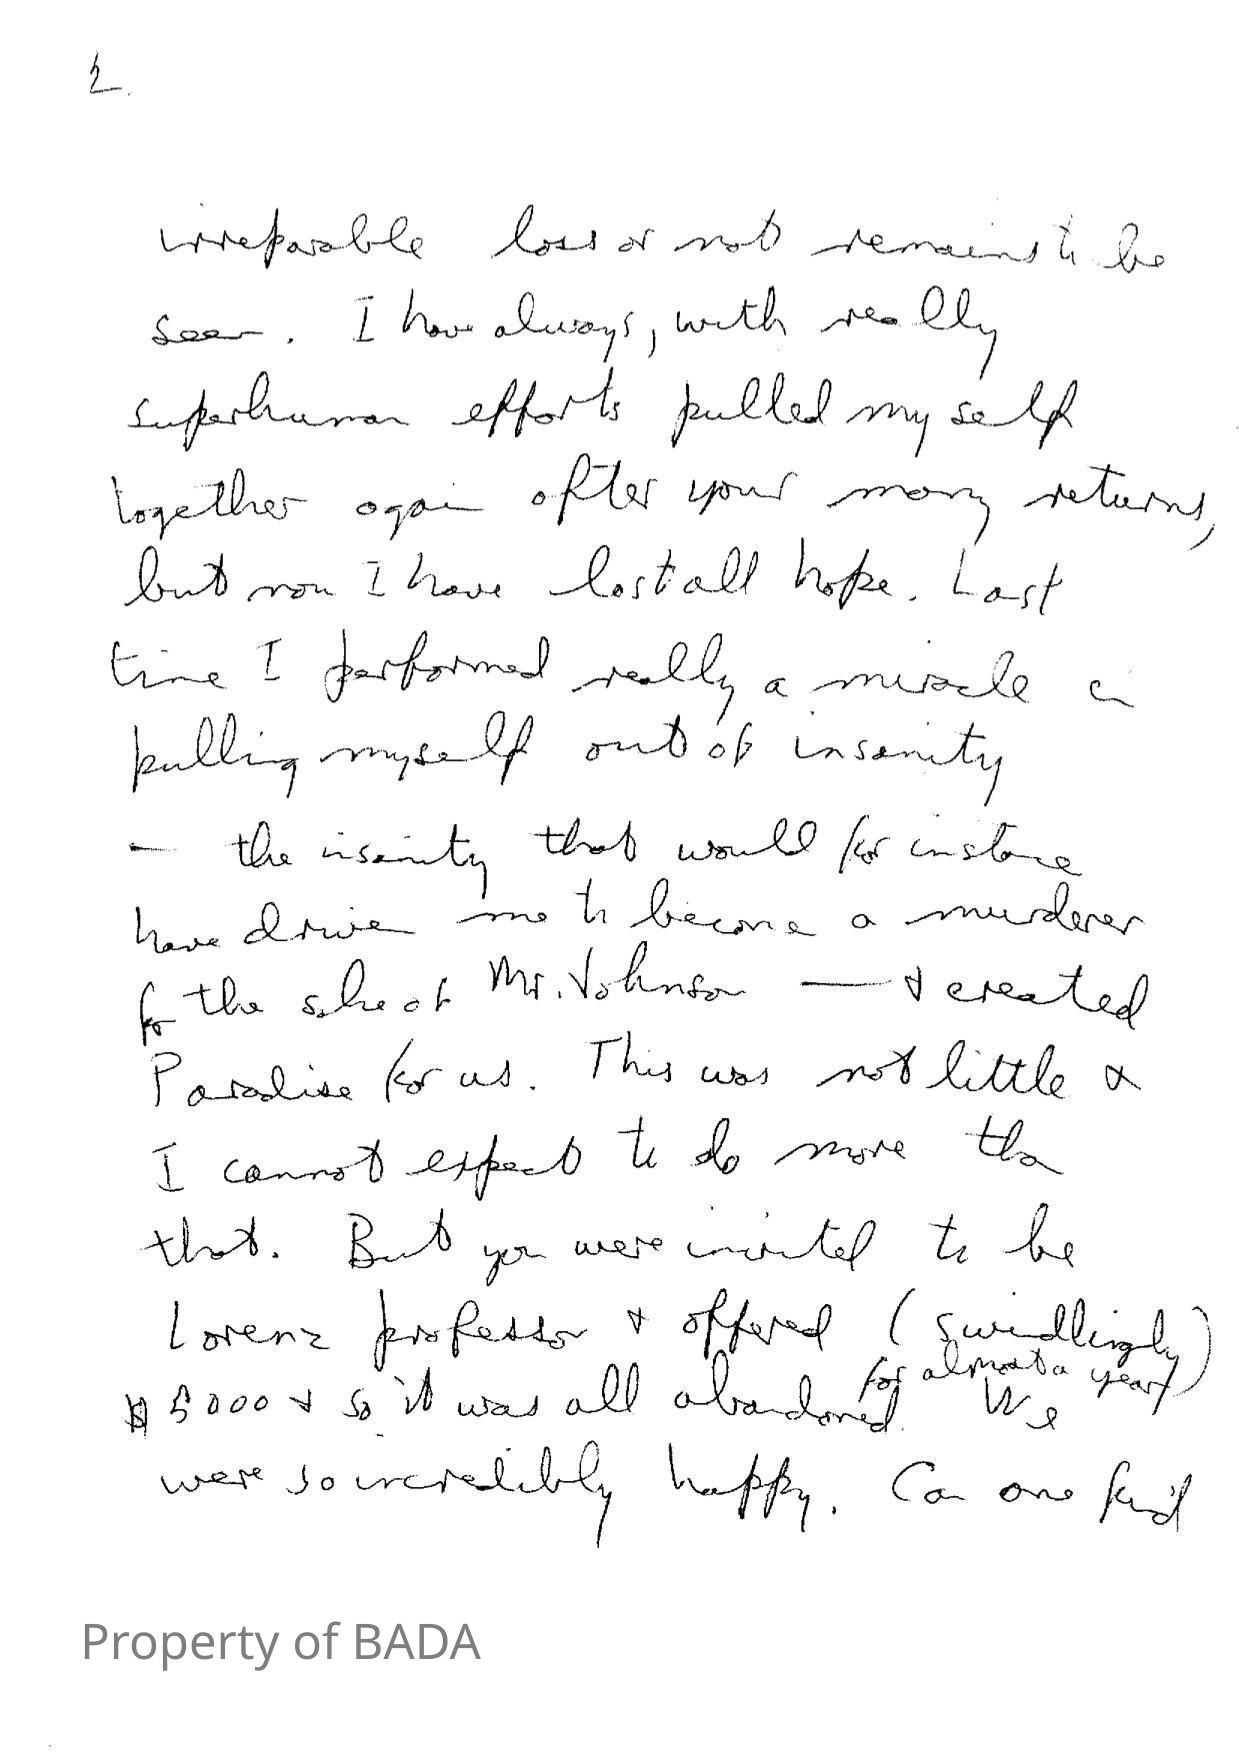 2.
irreparable loss or not remains to be
seen. I have always, with really
superhuman efforts pulled myself
together again after your many returns,
but now I have lost all hope. Last
time I performed really a miracle in
pulling myself out of insanity
— the insanity that would for instance
have driven me to become a murderer
for the sake of Mr. Johnson — & created
Paradise for us. This was not little &
I cannot expect to do more than
that. But you were invited to be
Lorenz professor & offered (swindlingly)
for almost a year)
$5000 & so it was all abandoned. We
were so incredibly happy. Can one find
Property of BADA